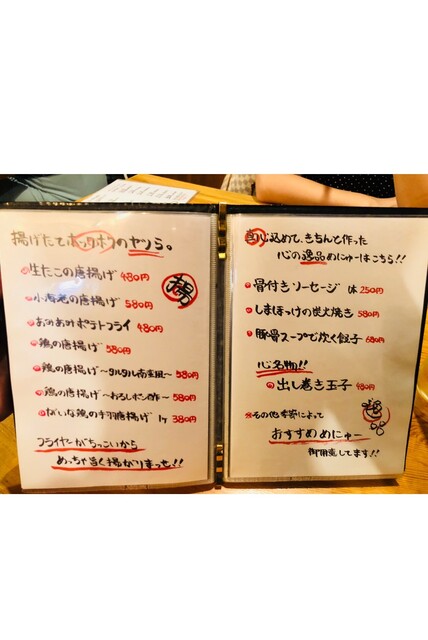 揚げたてホックホクのヤツら。
生たこの唐揚げ 480円
小海老の唐揚げ 580円
あみあみポテトフライ 480円
鶏の唐揚げ 580円
鶏の唐揚げ〜タルタル南蛮風〜 580円
鶏の唐揚げ〜おろしポン酢〜 580円
ないな鶏の手羽唐揚げ 1ヶ 380円
フライヤーがちっこいから
めっちゃ旨く揚がりまっせ!!
揚
心込めて、きちんと作った
心の逸品めにゅーはこちら!!
骨付きソーセージ 1本 250円
しまほっけの炭火焼き 580円
豚骨スープで炊く餃子 680円
心名物!!
出し巻き玉子 480円
※その他 季節によって
おすすめめにゅー
御用意してます!!